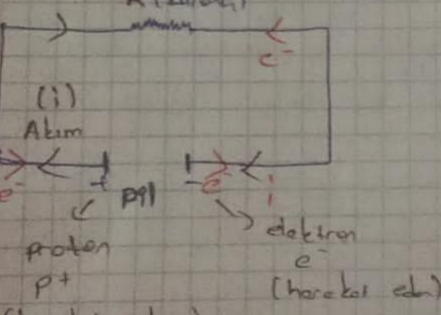 e⁻
(i)
Akım
e⁻
+
pil
-
e⁻
i
proton
p+
elektron
e⁻
(hareket eden)